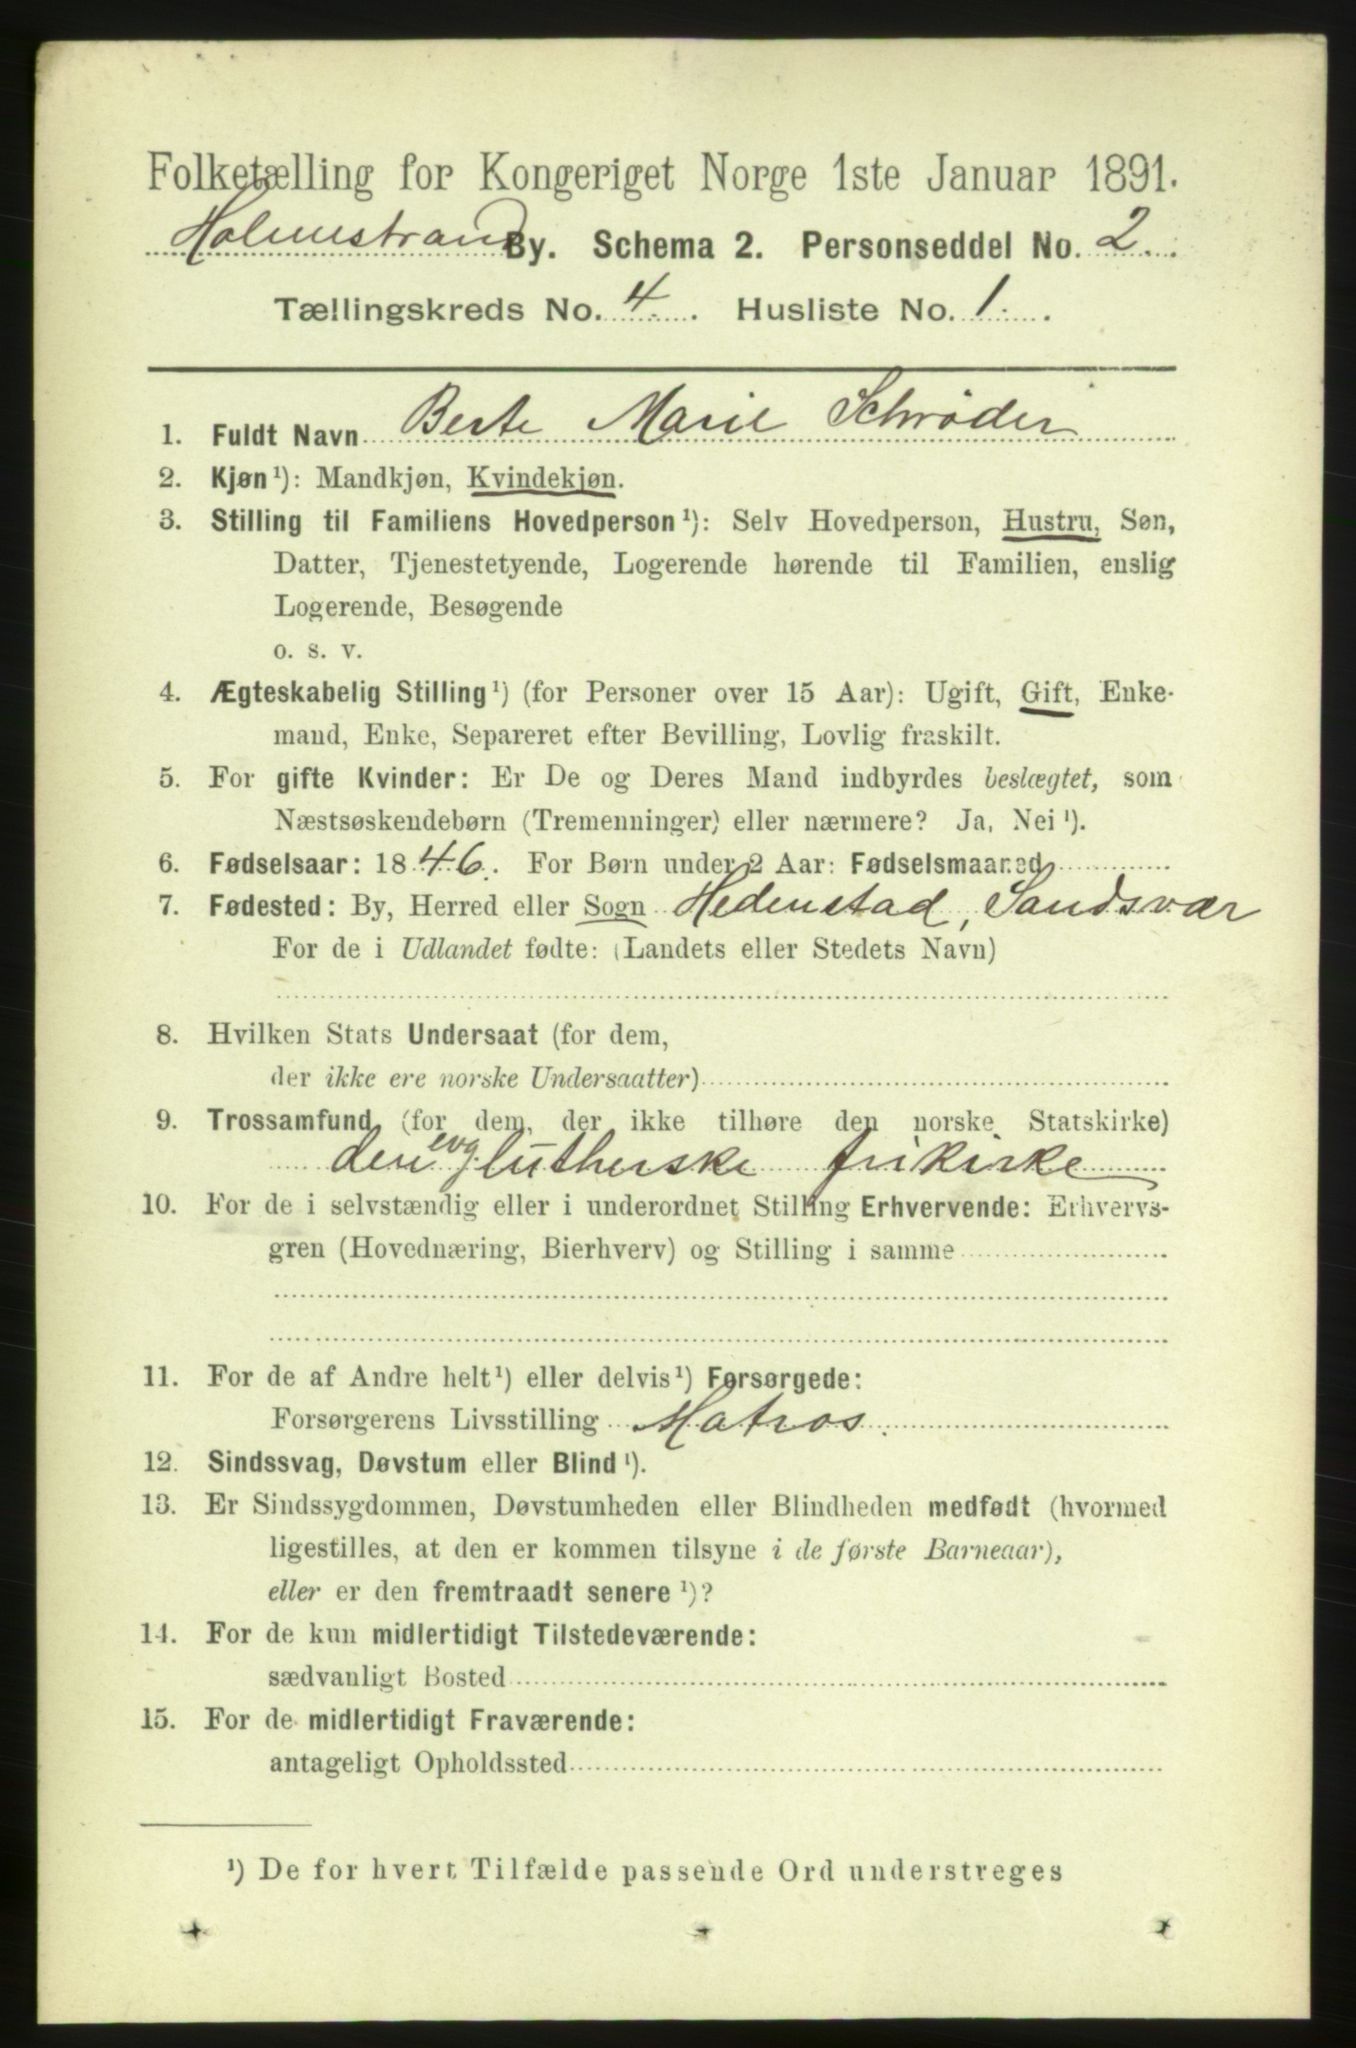 Folketælling for Kongeriget Norge 1ste Januar 1891.
Holmestrand By. Schema 2. Personseddel No. 2.
Tællingskreds No. 4. Husliste No. 1.
1. Fuldt Navn Berte Marie Schrøder
2. Kjøn ¹): Mandkjøn, Kvindekjøn.
3. Stilling til Familiens Hovedperson ¹): Selv Hovedperson, Hustru, Søn,
Datter, Tjenestetyende, Logerende hørende til Familien, enslig
Logerende, Besøgende
o. s. v.
4. Ægteskabelig Stilling ¹) (for Personer over 15 Aar): Ugift, Gift, Enke-
mand, Enke, Separeret efter Bevilling, Lovlig fraskilt.
5. For gifte Kvinder: Er De og Deres Mand indbyrdes beslægtet, som
Næstsøskendebørn (Tremenninger) eller nærmere? Ja, Nei ¹).
6. Fødselsaar: 1846. For Børn under 2 Aar: Fødselsmaaned
7. Fødested: By, Herred eller Sogn Hedenstad, Sandsvær
For de i Udlandet fødte: (Landets eller Stedets Navn)
8. Hvilken Stats Undersaat (for dem,
der ikke ere norske Undersaatter)
9. Trossamfund (for dem, der ikke tilhøre den norske Statskirke)
den evg lutherske frikirke
10. For de i selvstændig eller i underordnet Stilling Erhvervende: Erhvervs-
gren (Hovednæring, Bierhverv) og Stilling i samme
11. For de af Andre helt ¹) eller delvis ¹) Forsørgede:
Forsørgerens Livsstilling Matros.
12. Sindssvag, Døvstum eller Blind ¹).
13. Er Sindssygdommen, Døvstumheden eller Blindheden medfødt (hvormed
ligestilles, at den er kommen tilsyne i de første Barneaar),
eller er den fremtraadt senere ¹)?
14. For de kun midlertidigt Tilstedeværende:
sædvanligt Bosted
15. For de midlertidigt Fraværende:
antageligt Opholdssted
¹) De for hvert Tilfælde passende Ord understreges